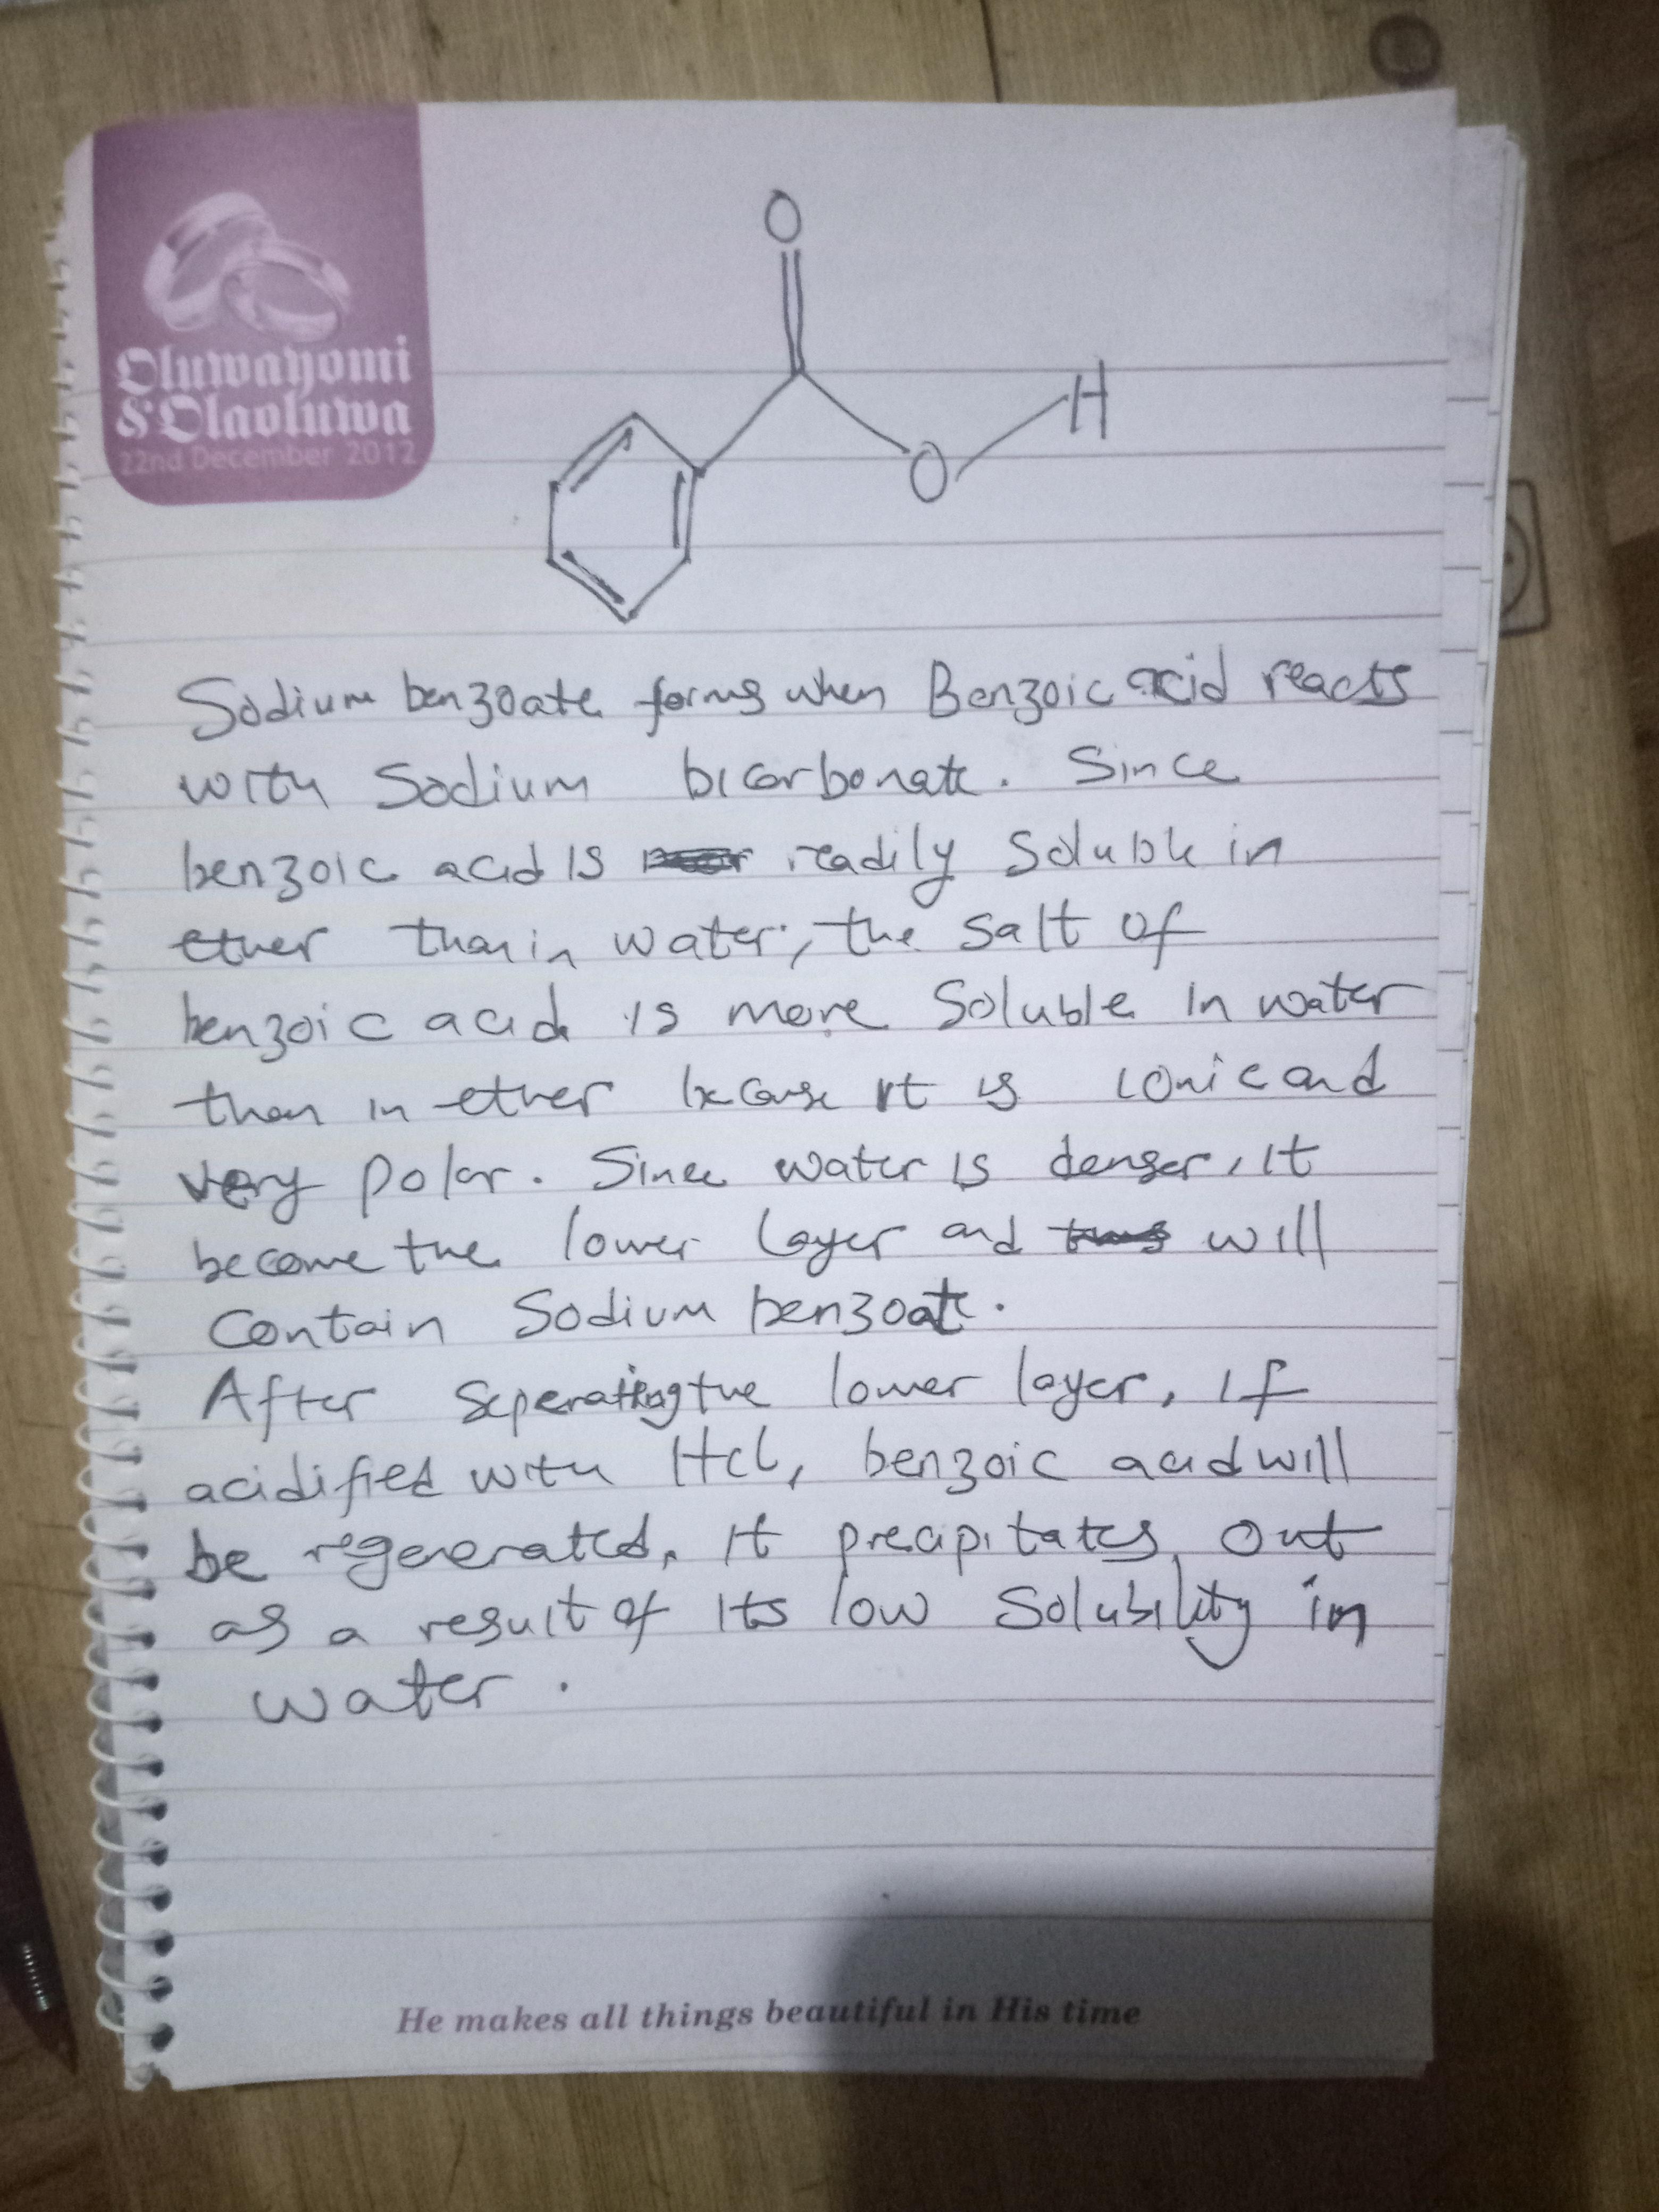 Oluwayomi
& Olaoluwa
22nd December 2012
O
H
O
Sodium benzoate forms when Benzoic acid reacts
with Sodium bicarbonate. Since
benzoic acid is readily soluble in
ether than in water, the salt of
benzoic acid is more soluble in water
than in ether because it is ionic and
very polar. Since water is denser, it
become the lower layer and will
Contain Sodium benzoate.
After seperating the lower layer, if
acidified with Hcl, benzoic acid will
be regenerated. It precipitates out
as a result of its low solubility in
water.
He makes all things beautiful in His time